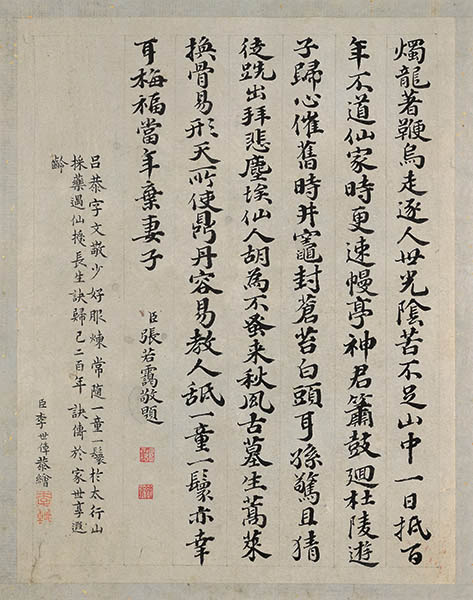 燭龍著鞭烏走逐人世光陰苦不足山中一日抵百
年不道仙家時更速幔亭神君簫鼓迴杜陵遊
子歸心催舊時井竈封蒼苔白頭耳孫驚且猜
徒跣出拜悲塵埃仙人胡為不蚤来秋風古墓生蒿萊
換骨易形天所使鼎丹容易教人舐一童一鬟亦幸
耳梅福當年棄妻子
臣張若靄敬題
呂恭字文敬少好服煉常隨一童一鬟於太行山
採藥遇仙授長生訣歸已二百年訣傳於家世享遐
齡
臣李世倬恭繪